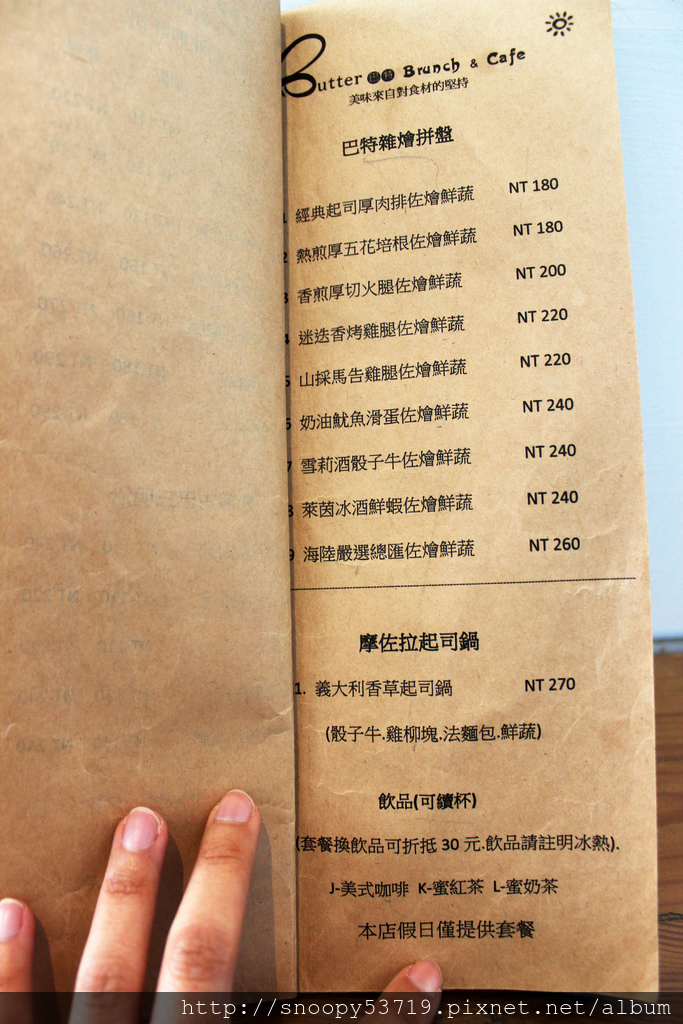 Butter 巴特 Brunch & Cafe
美味來自對食材的堅持
巴特雜燴拼盤
1 經典起司厚肉排佐燴鮮蔬 NT 180
2 熱煎厚五花培根佐燴鮮蔬 NT 180
3 香煎厚切火腿佐燴鮮蔬 NT 200
4 迷迭香烤雞腿佐燴鮮蔬 NT 220
5 山採馬告雞腿佐燴鮮蔬 NT 220
6 奶油魷魚滑蛋佐燴鮮蔬 NT 240
7 雪莉酒骰子牛佐燴鮮蔬 NT 240
8 萊茵冰酒鮮蝦佐燴鮮蔬 NT 240
9 海陸嚴選總匯佐燴鮮蔬 NT 260
摩佐拉起司鍋
1. 義大利香草起司鍋 NT 270
(骰子牛.雞柳塊.法麵包.鮮蔬)
飲品(可續杯)
(套餐換飲品可折抵 30 元.飲品請註明冰熱).
J-美式咖啡 K-蜜紅茶 L-蜜奶茶
本店假日僅提供套餐
http://snoopy53719.pixnet.net/album